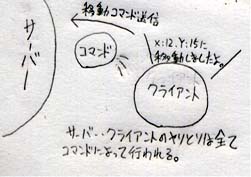 移動コマンド送信
サーバー
コマンド
x:12.Y:15に
移動しましたよ。
クライアント
サーバー・・クライアントのやりとりは全て
コマンドによって行われる。